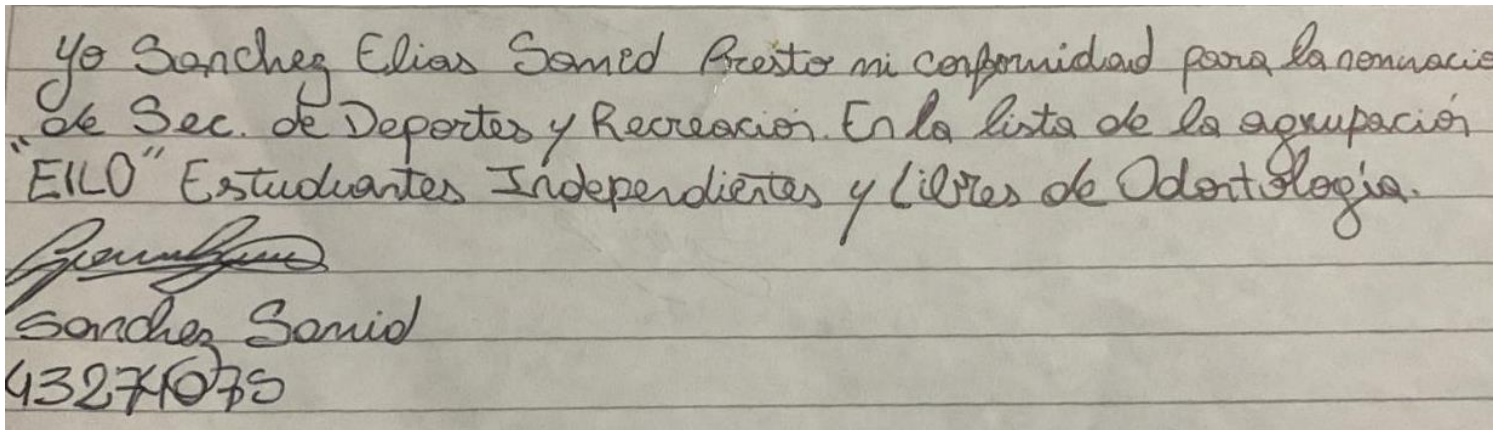 Yo Sanchez Elias Samid Presto mi conformidad para la nominacio
de Sec. de Deportes y Recreación. En la lista de la agrupación
"EILO" Estudiantes Independientes y Libres de Odontología.
Sanchez Samid